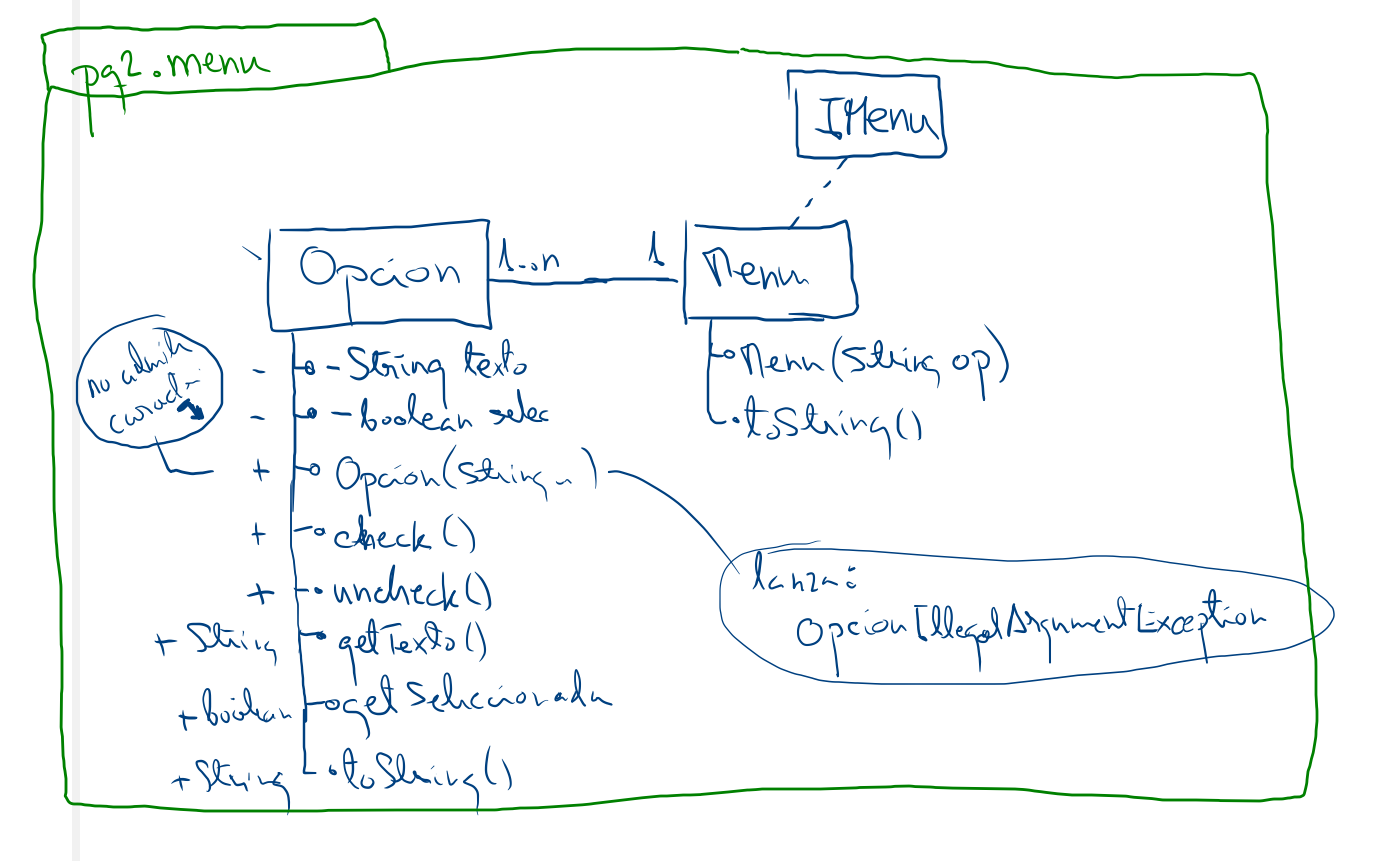 pq2.menu
IMenu
Opcion
1..n
1
Menu
no admite
- - String texto
- - boolean selec
+ Opcion(String
+ check()
+ uncheck()
+ String getTexto()
+ boolean getSeleccionada
+ String toString()
Menu(String op)
toString()
lanza:
OpcionIllegalArgumentException